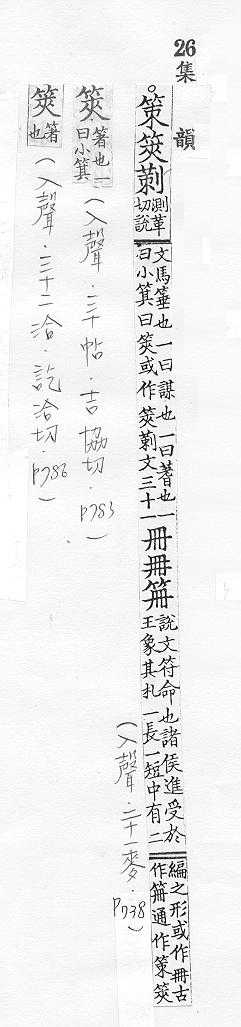 26
集 韻
。策筴茦測革切說文馬箠也一曰謀也一曰蓍也一曰小箕曰筴或作筴茦文三十一冊𠕋笧說文符命也諸侯進受於王象其札一長一短中有二編之形或作𠕋古作笧通作策筴
(入聲．二十一麥．P738)
筴蓍也一曰小箕(入聲．三十帖．吉協切．P783)
筴箸也(入聲．三十二洽．訖洽切．P786)